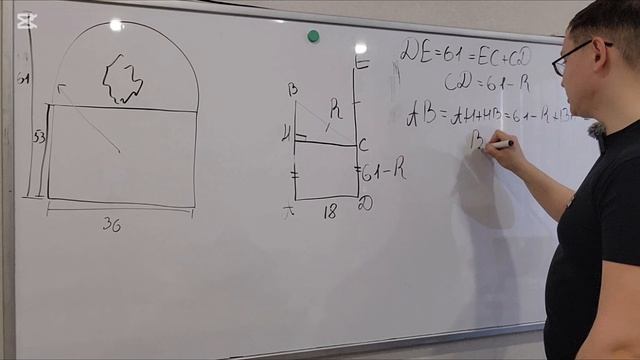 DE=61=EC+CD
CD=61-R
AB=AH+HB=61-R+
B
61
53
36
E
B
R
H
C
61-R
A
18
D